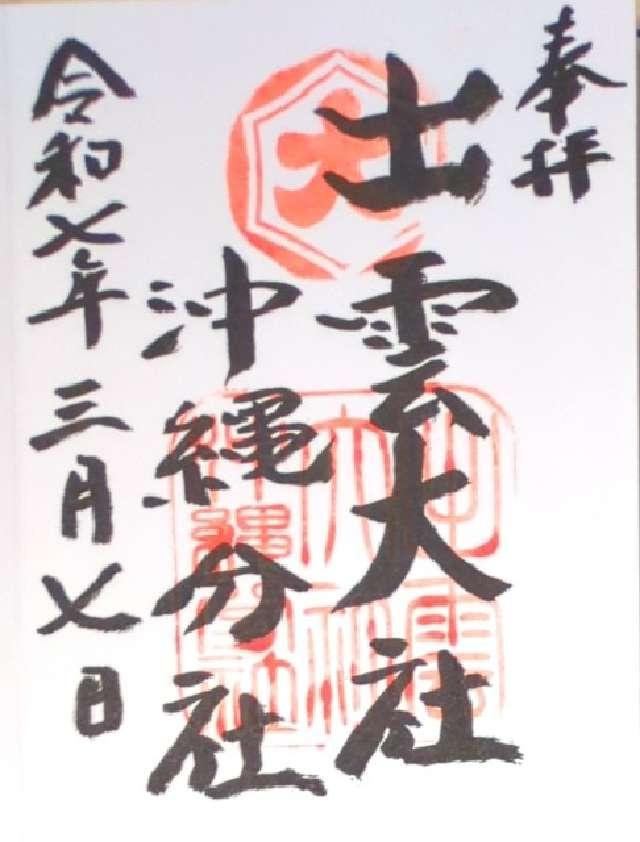 奉拝
出雲大社
沖縄分社
令和七年三月七日